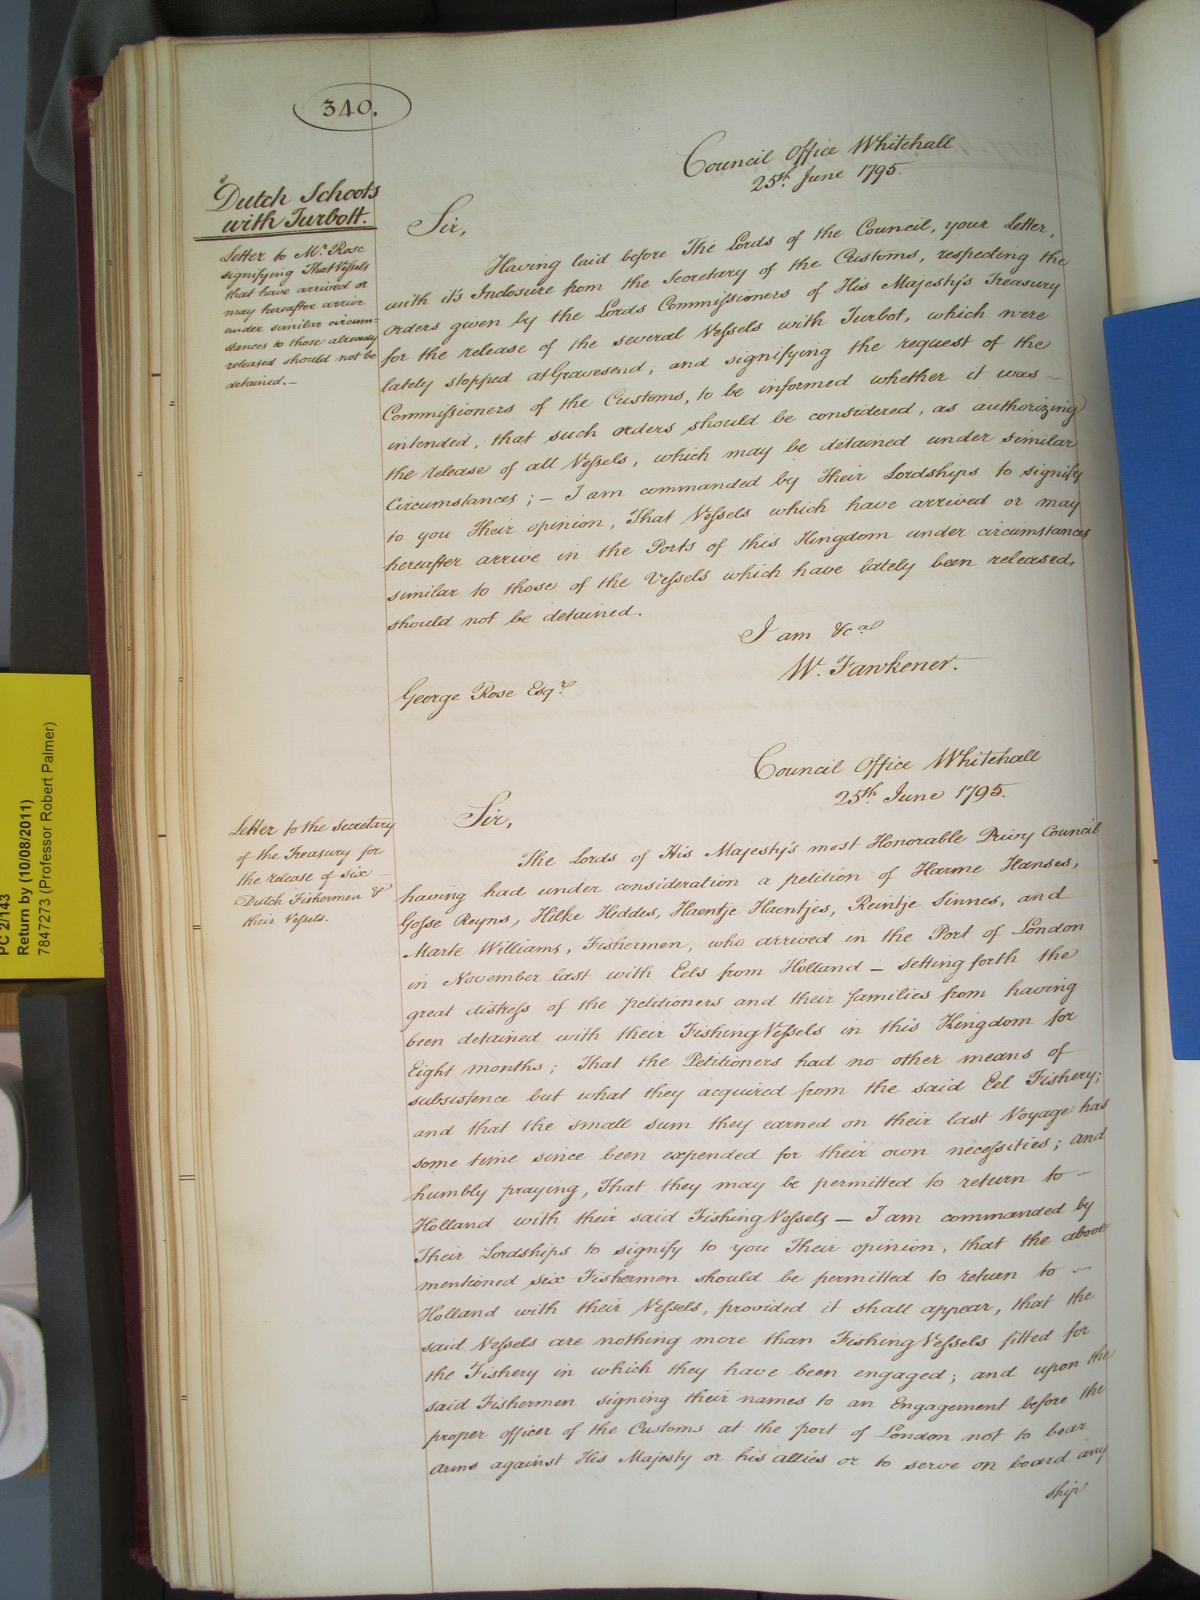 340.
Council Office Whitehall
25th. June 1795.
Dutch Schoots
with Turbott.
Letter to Mr. Rose
signifying That Vessels
that have arrived or
may hereafter arrive
under similar circum-
stances to those already
released should not be
detained.—
Sir,
Having laid before The Lords of the Council, your Letter,
with it's Inclosure from the Secretary of the Customs, respecting the
orders given by the Lords Commissioners of His Majesty's Treasury
for the release of the several Vessels with Turbot, which were
lately stopped at Gravesend; and signifying the request of the
Commissioners of the Customs, to be informed whether it was —
intended, that such orders should be considered, as authorizing
the release of all Vessels, which may be detained under similar
Circumstances; — I am commanded by Their Lordships to signify
to you Their opinion, That Vessels which have arrived or may
hereafter arrive in the Ports of this Kingdom under circumstances
similar to those of the Vessels which have lately been released,
should not be detained.
I am &c al
W. Fawkener.
George Rose Esqr.
Council Office Whitehall
25th. June 1795.
Letter to the Secretary
of the Treasury for
the release of six —
Dutch Fishermen &
their Vessels.
Sir,
The Lords of His Majesty's most Honorable Privy Council
having had under consideration a petition of Harme Hanses,
Gosse Reyns, Hilke Heddes, Haentje Haentjes, Reintje Sinnes, and
Marle Williams, Fishermen, who arrived in the Port of London
in November last with Eels from Holland — setting forth the
great distress of the petitioners and their families from having
been detained with their Fishing Vessels in this Kingdom for
Eight months; That the Petitioners had no other means of
subsistence but what they acquired from the said Eel Fishery;
and that the small sum they earned on their last Voyage has
some time since been expended for their own necessities; and
humbly praying, That they may be permitted to return to —
Holland with their said Fishing Vessels — I am commanded by
Their Lordships to signify to you Their opinion, that the above
mentioned six Fishermen should be permitted to return to —
Holland with their Vessels, provided it shall appear, that the
said Vessels are nothing more than Fishing Vessels fitted for
the Fishery in which they have been engaged; and upon the
said Fishermen signing their names to an Engagement before the
proper officer of the Customs at the port of London not to bear
Arms against His Majesty or his allies or to serve on board any
ship
PC 2/143
Return by (10/08/2011)
7847273 (Professor Robert Palmer)